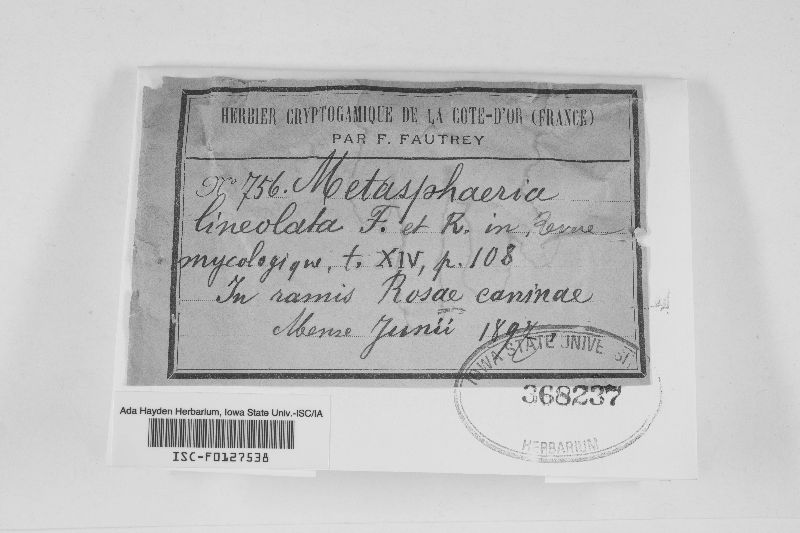 HERBIER CRYPTOGAMIQUE DE LA COTE-D'OR (FRANCE)
PAR F. FAUTREY
No 756. Metasphaeria
lineolata F. et R. in Revue
mycologique, t. XIV, p. 108
In ramis Rosae caninae
Mense Junii
IOWA STATE UNIVERSIT
368237
HERBARIUM
Ada Hayden Herbarium, Iowa State Univ.-ISC/IA
ISC-F0127538